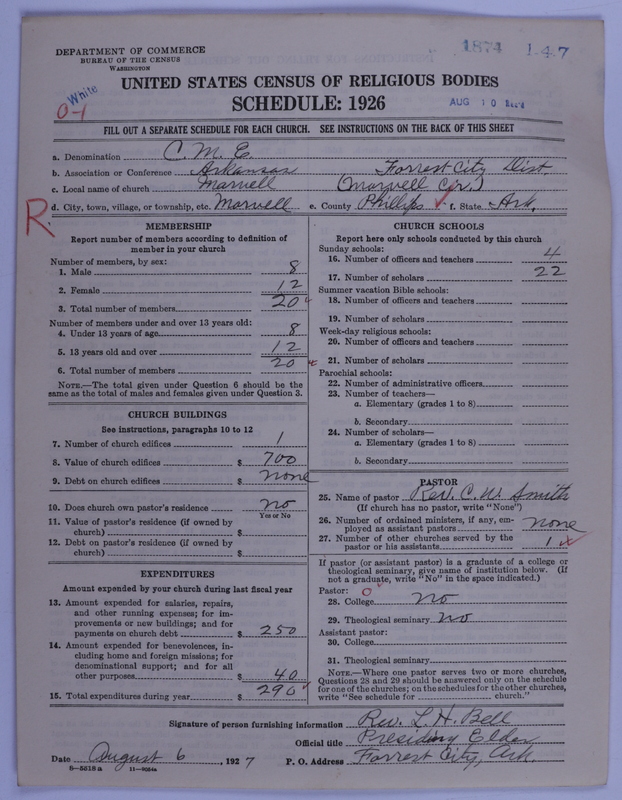 DEPARTMENT OF COMMERCE
BUREAU OF THE CENSUS
WASHINGTON
1874 1-47
White
0-1
UNITED STATES CENSUS OF RELIGIOUS BODIES
SCHEDULE: 1926
AUG 10 Rec'd
FILL OUT A SEPARATE SCHEDULE FOR EACH CHURCH. SEE INSTRUCTIONS ON THE BACK OF THIS SHEET
a. Denomination C. M. E.
b. Association or Conference Arkansas Forrest City Dist.
c. Local name of church Marvell (Marvell Cir.)
d. City, town, village, or township, etc. Marvell e. County Phillips f. State Ark.
R.
MEMBERSHIP
Report number of members according to definition of
member in your church
Number of members, by sex:
1. Male 8
2. Female 12
3. Total number of members 20
Number of members under and over 13 years old:
4. Under 13 years of age 8
5. 13 years old and over 12
6. Total number of members 20
NOTE.—The total given under Question 6 should be the
same as the total of males and females given under Question 3.
CHURCH BUILDINGS
See instructions, paragraphs 10 to 12
7. Number of church edifices 1
8. Value of church edifices $ 700
9. Debt on church edifices $ none
10. Does church own pastor's residence no
Yes or No
11. Value of pastor's residence (if owned by
church) $
12. Debt on pastor's residence (if owned by
church) $
EXPENDITURES
Amount expended by your church during last fiscal year
13. Amount expended for salaries, repairs,
and other running expenses; for im-
provements or new buildings; and for
payments on church debt $ 250
14. Amount expended for benevolences, in-
cluding home and foreign missions; for
denominational support; and for all
other purposes $ 40
15. Total expenditures during year $ 290
CHURCH SCHOOLS
Report here only schools conducted by this church
Sunday schools:
16. Number of officers and teachers 4
17. Number of scholars 22
Summer vacation Bible schools:
18. Number of officers and teachers
19. Number of scholars
Week-day religious schools:
20. Number of officers and teachers
21. Number of scholars
Parochial schools:
22. Number of administrative officers
23. Number of teachers—
a. Elementary (grades 1 to 8)
b. Secondary
24. Number of scholars—
a. Elementary (grades 1 to 8)
b. Secondary
PASTOR
25. Name of pastor Rev. C. W. Smith
(If church has no pastor, write "None")
26. Number of ordained ministers, if any, em-
ployed as assistant pastors none
27. Number of other churches served by the
pastor or his assistants 1
If pastor (or assistant pastor) is a graduate of a college or
theological seminary, give name of institution below. (If
not a graduate, write "No" in the space indicated.)
Pastor: 0
28. College no
29. Theological seminary no
Assistant pastor:
30. College
31. Theological seminary
NOTE.—Where one pastor serves two or more churches,
Questions 28 and 29 should be answered only on the schedule
for one of the churches; on the schedules for the other churches,
write "See schedule for church."
Signature of person furnishing information Rev. L. H. Bell
Official title Presiding Elder
Date August 6, 1927 P. O. Address Forrest City, Ark.
8-5518 a 11-9024a